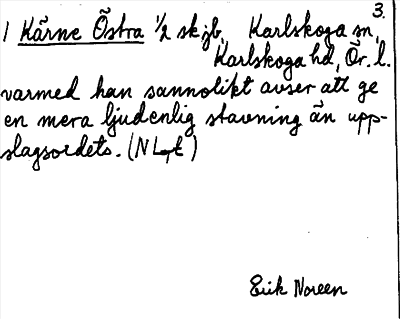 3.
1 Kärne Östra 1/2 sk jb, Karlskoga sn,
Karlskoga hd, Ör. l.
varmed han sannolikt avser att ge
en mera ljudenlig stavning än upp-
slagsordets.
Erik Noreen